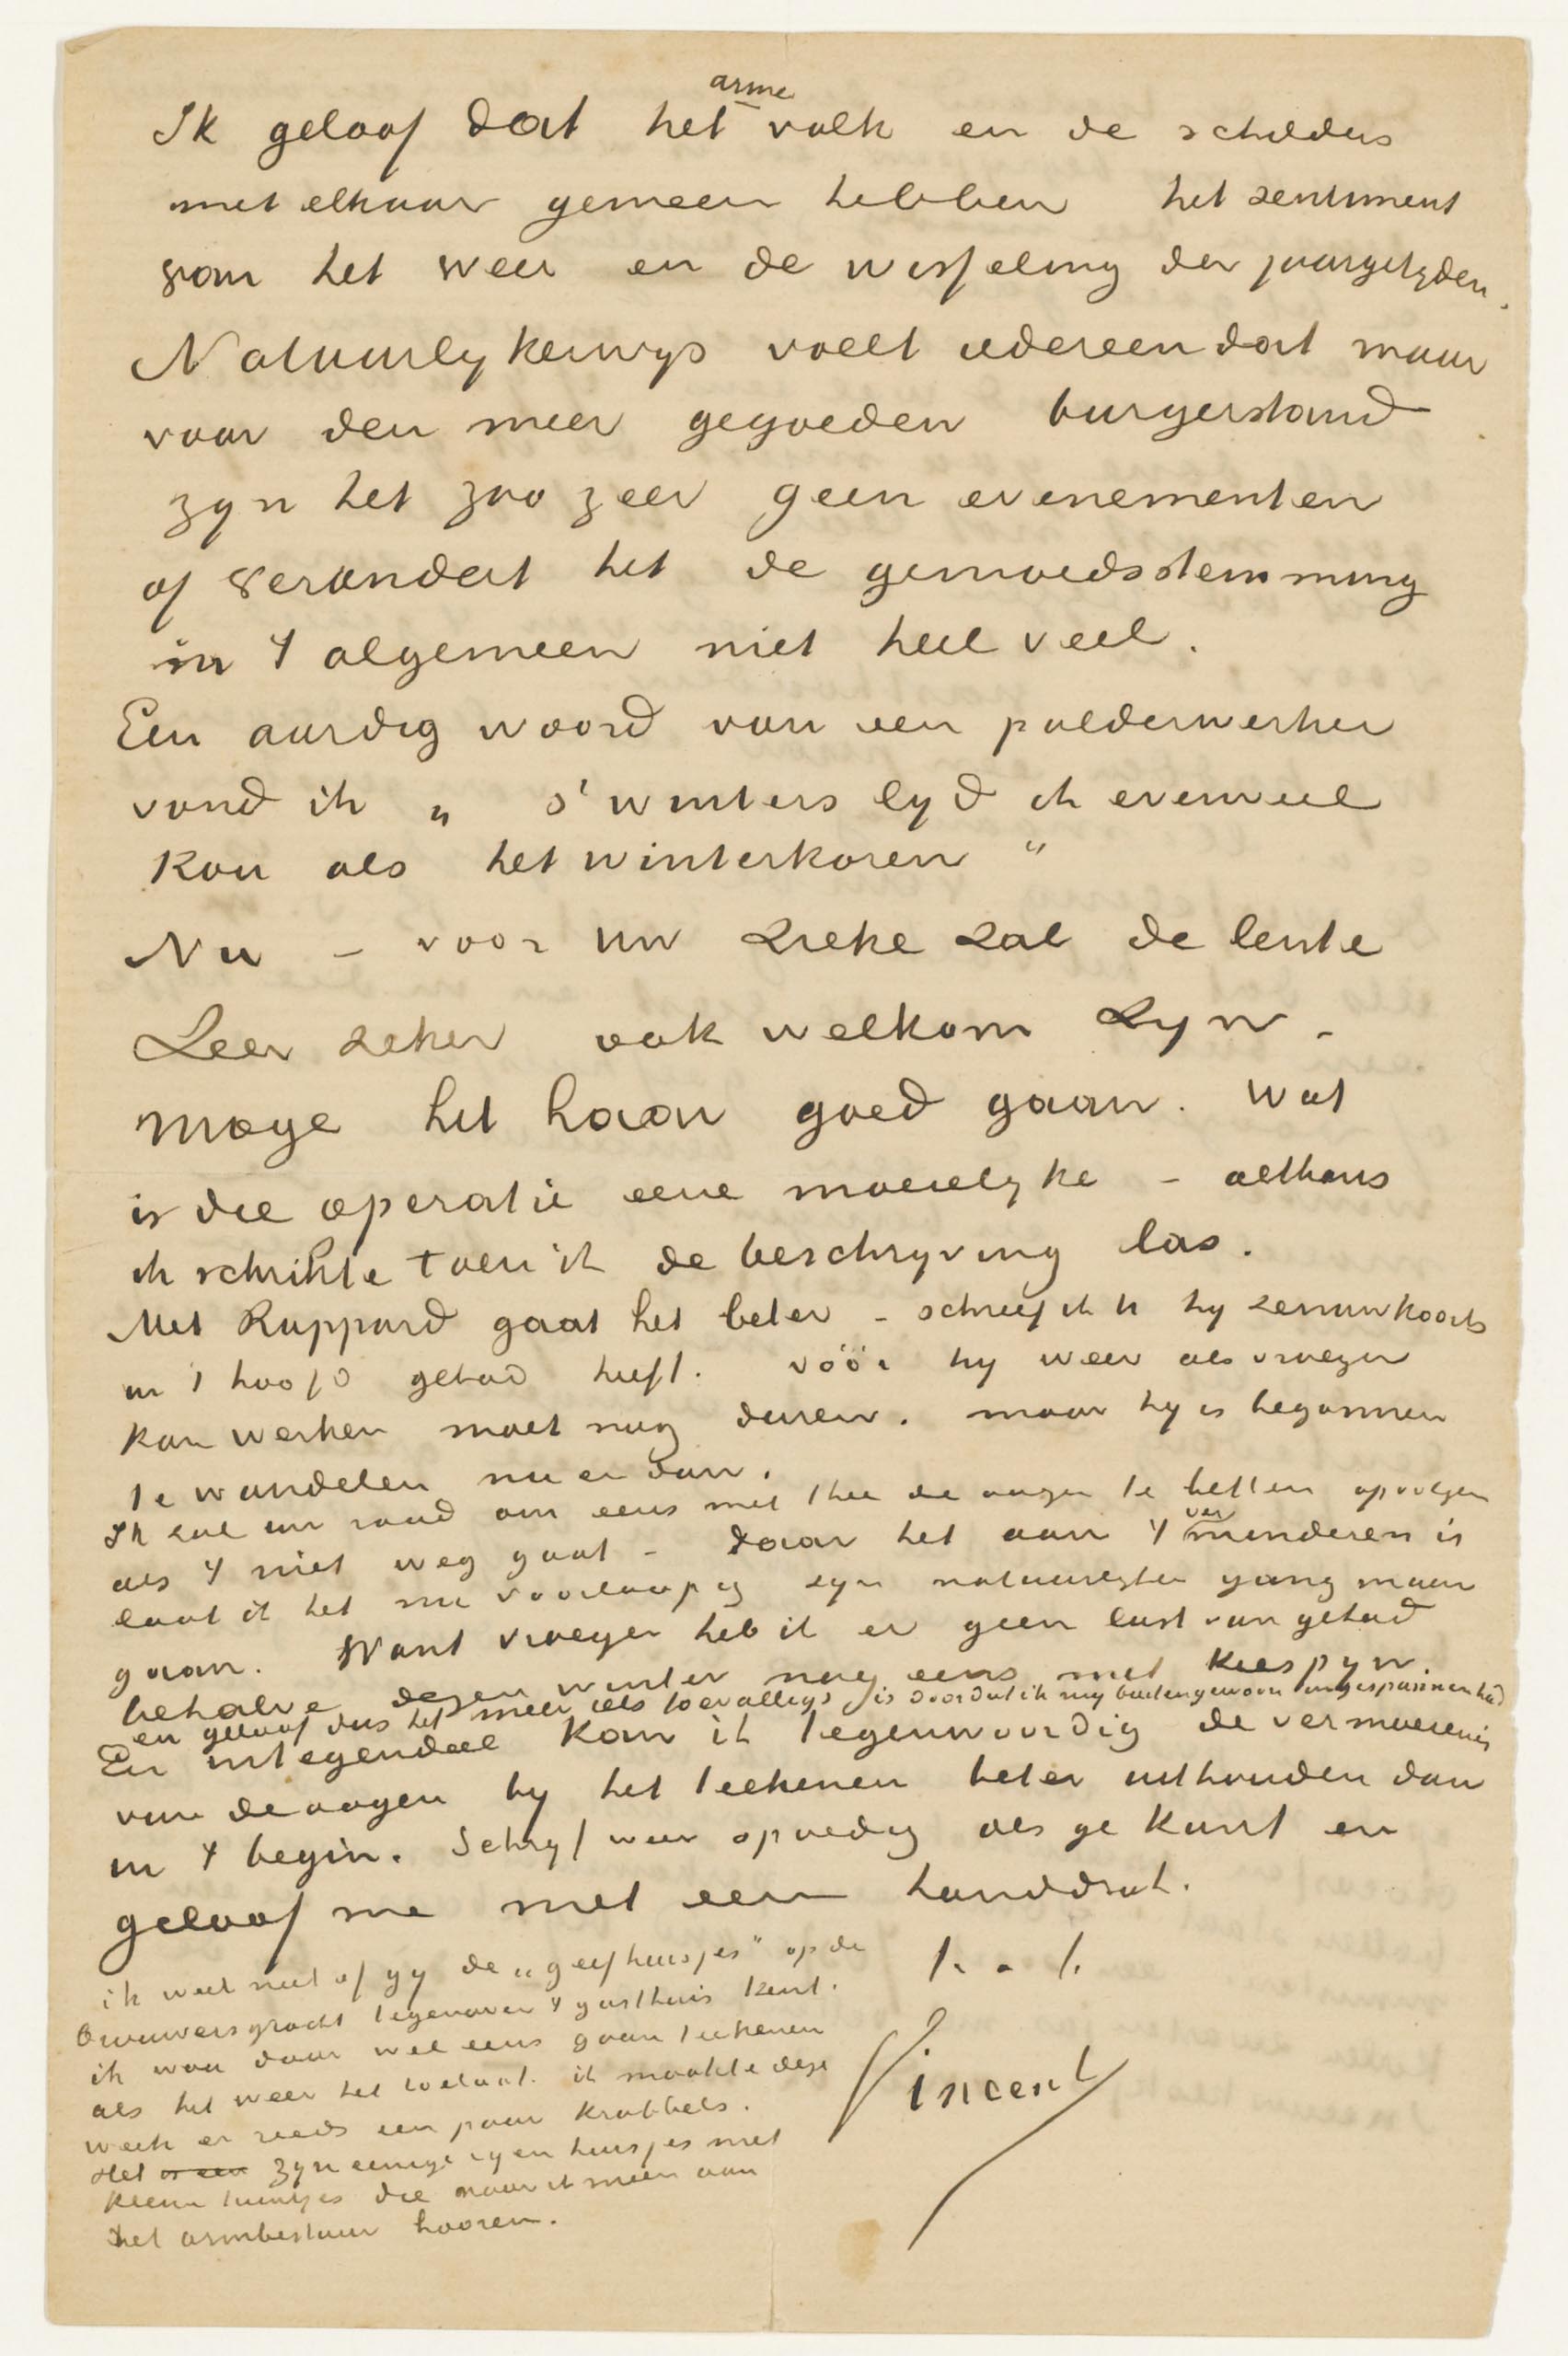 arme
Ik geloof dat het volk en de schilders
met elkaar gemeen hebben het sentiment
van het weer en de wisseling der jaargetyden.
Natuurlykerwys voelt iedereen dat maar
voor den meer gegoeden burgerstand
zyn het zoo zeer geen evenementen
of verandert het de gemoedsstemming
in 't algemeen niet heel veel.
Een aardig woord van een polderwerker
vond ik „ s'winters lyd ik evenveel
kou als het winterkoren "
Nu – voor uw zieke zal de lente
Zeer zeker ook welkom zyn –
moge het haar goed gaan. Wat
is die operatie eene moeielyke – althans
ik schrikte toen ik de beschryving las.
Met Rappard gaat het beter – schreef ik U hy zenuwkoorts
in 't hoofd gehad heeft. Vóór hy weer als vroeger
kan werken moet nog duren. maar hy is begonnen
te wandelen nu en dan.
Ik zal uw raad om eens met thee de oogen te betten opvolgen
als 't niet weg gaat – daar het aan 't verminderen is
laat ik het nu voorloopig zyn natuurlyken gang maar
gaan. Want vroeger heb ik er geen last van gehad
behalve dezen winter nog eens met kiespyn.
en geloof dus het meer iets toevalligs is doordat ik my buitengewoon ingespannen had
En integendeel kan ik tegenwoordig de vermoeienis
van de oogen by het teekenen beter uithouden dan
in 't begin. Schryf weer spoedig als ge kunt en
geloof me met een handdruk.
t. à. t.
Vincent
ik weet niet of gy de „geefhuisjes" op de
Brouwersgracht tegenover 't gasthuis kent.
ik wou daar wel eens gaan teekenen
als het weer het toelaat. ik maakte deze
week er reeds een paar krabbels.
Het is een zyn eenige ryen huisjes met
kleine tuintjes die naar ik meen aan
het armbestuur hooren.